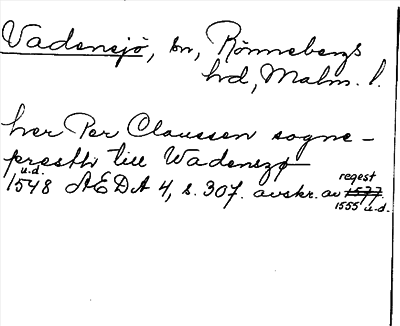 Vadensjö, sn, Rönnebergs
hd, Malm. l.
her Per Claussen sogne-
presth till Wadenszø
u.d.
1548 AEDA 4, s. 307. avskr. av 1577.
regest
1555 u.d.